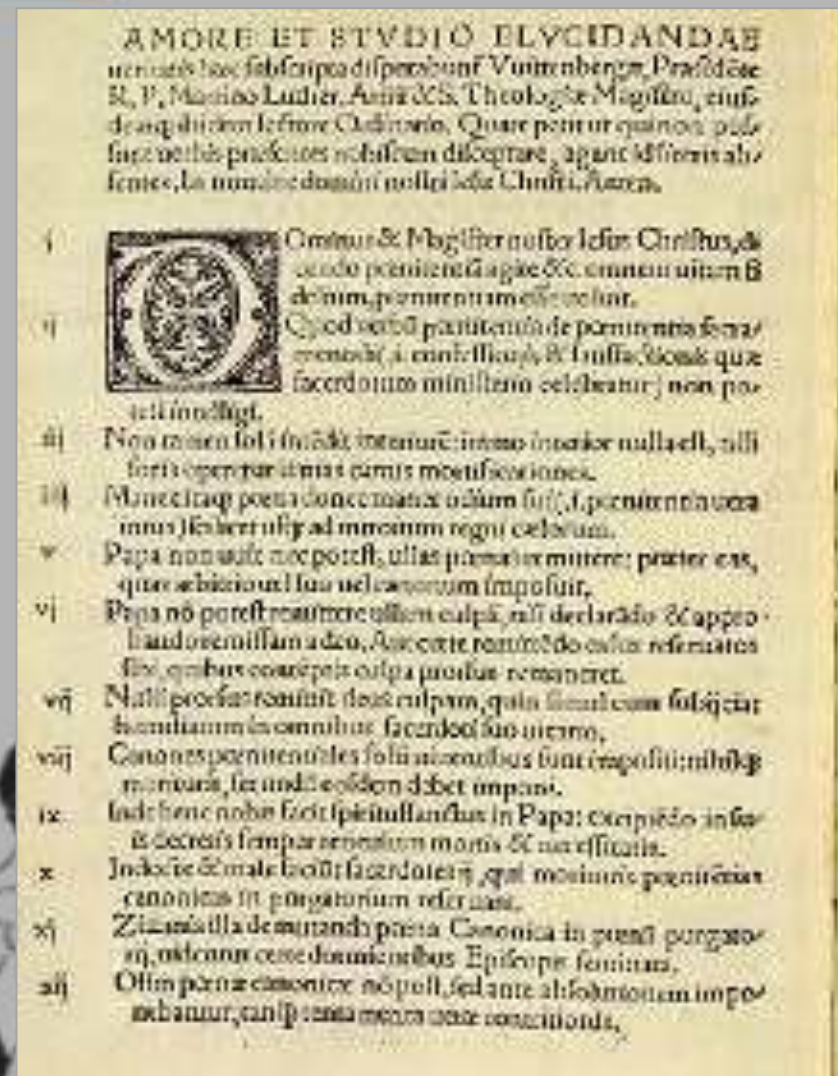 AMORE ET STVDIO ELVCIDANDAE
ueritatis haec subscripta disputabunt Vuittenbergæ, Præsidēte
R. P. Martino Luther, Artiū & S. Theologiæ Magistro, eius-
dem ibidem lectore Ordinario. Quare petit ut qui non pos/
sunt uerbis præsentes nobiscum disceptare, agant id literis ab/
sentes. In nomine domini nostri Iesu Christi. Amen.
i DOminus & Magister noster Iesus Christus, di
cendo pœnitentiā agite &c. omnem uitam fi
delium, pœnitentiam esse uoluit.
ij Quod uerbū pœnitentia de pœnitentia sacra/
mentali(.i. confessionis & satisfactionis quæ
sacerdotum ministerio celebratur) non po/
test intelligi.
iij Non tamen solā intēdit interiorē: immo interior nulla est, nisi
foris operetur uarias carnis mortificationes.
iiij Manet itaq; pœna donec manet odium sui (.i. pœnitentia uera
intus) scilicet usq; ad introitum regni cælorum.
v Papa non uult nec potest, ullas pœnas remittere: præter eas,
quas arbitrio uel suo uel canonum imposuit.
vj Papa nō potest remittere ullam culpā, nisi declarādo & appro-
bando remissam a deo. Aut certe remittēdo casus reseruatos
sibi, quibus contēptis culpa prorsus remaneret.
vij Nulli prorsus remittit deus culpam, quin simul eum subijciat
humiliatum in omnibus sacerdoti suo uicario.
viij Canones pœnitentiales solū uiuentibus sunt impositi: nihilq;
morituris, secundū eosdem debet imponi.
ix Inde bene nobis facit spiritussanctus in Papa: excipiēdo in su/
is decretis semper articulum mortis & necessitatis.
x Indocte & male faciūt sacerdotes ij, qui morituris pœnitētias
canonicas in purgatorium reseruant.
xj Zizania illa de mutanda pœna Canonica in pœnā purgato/
rij, uidentur certe dormientibus Episcopis seminata.
xij Olim pœnæ canonicæ nō post, sed ante absolutionem impo/
nebantur, tanq; tentamenta ueræ contritionis.